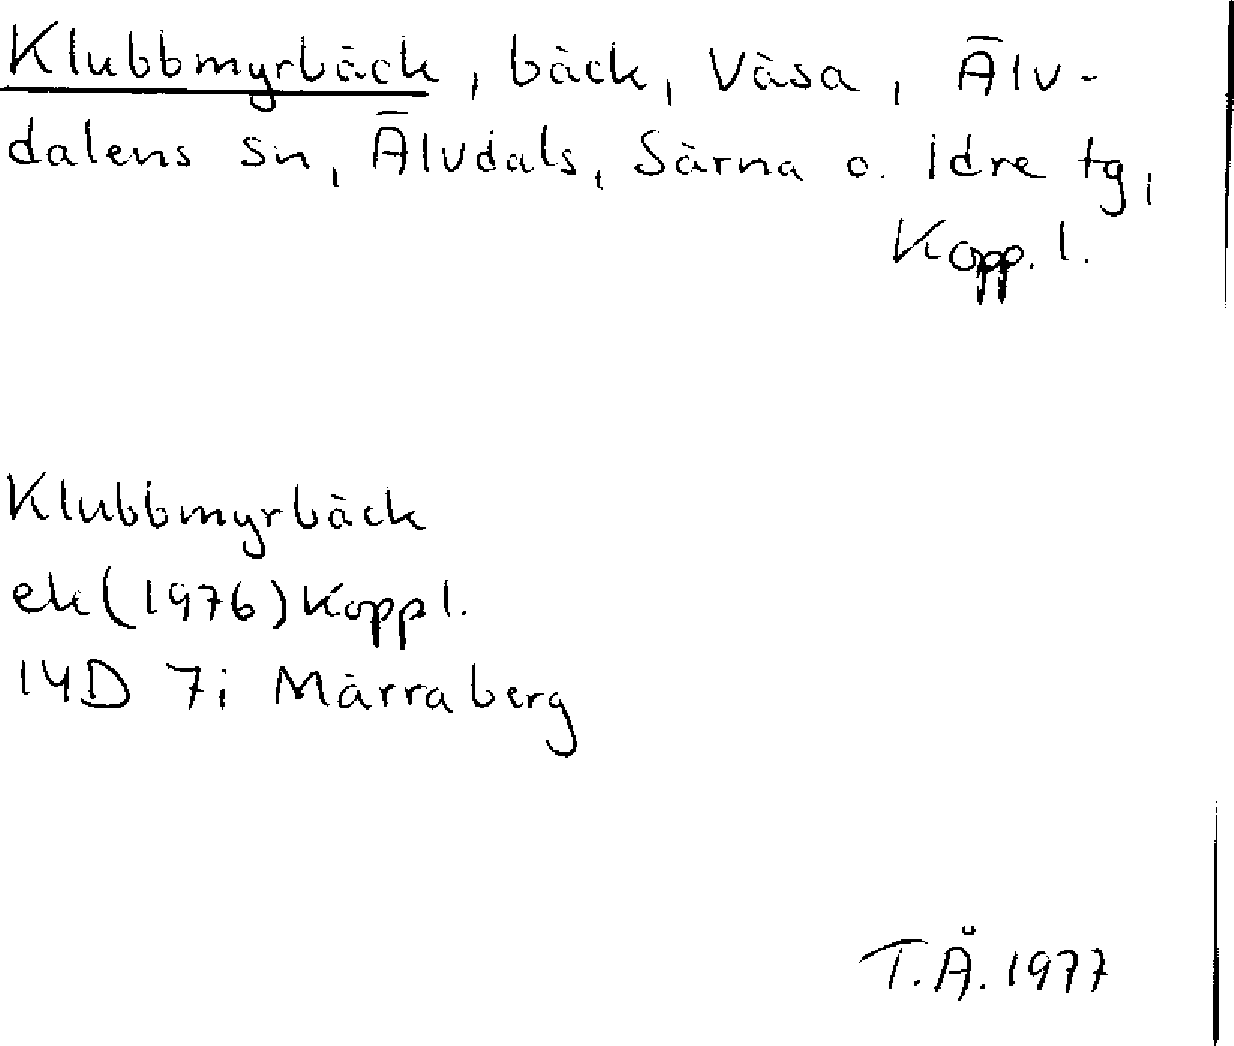 Klubbmyrbäck, bäck, Väsa, Älv-
dalens sn, Älvdals, Särna o. Idre tg,
Kopp. l.
Klubbmyrbäck
ek (1976) Kopp l.
14D 7i Märraberg
T.Å. 1977